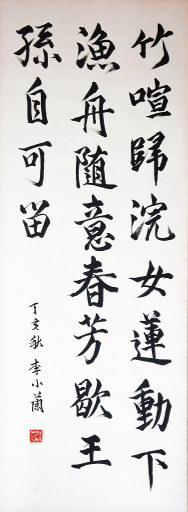 竹喧歸浣女蓮動下
漁舟随意春芳歇王
孫自可留
丁亥秋 李小